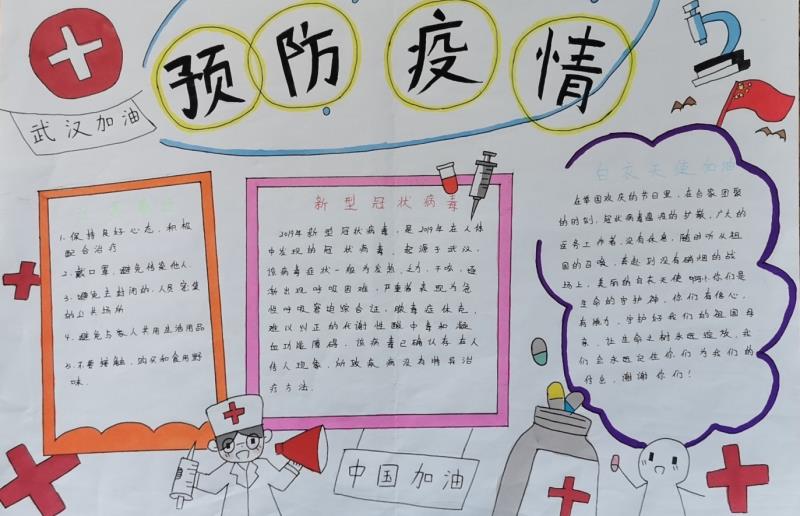 预防疫情
武汉加油
1.保持良好心态，积极
配合治疗
2.戴口罩，避免传染他人.
3.避免去封闭的，人员密集
的公共场所
4.避免与家人共用生活用品
5.不要接触，购买和食用野
味.
新型冠状病毒
2019年新型冠状病毒，是2019年在人体
中发现的冠状病毒，起源于武汉，
该病毒症状一般为发热、乏力、干咳、逐
渐出现呼吸困难，严重者表现为急
性呼吸窘迫综合征、脓毒症休克、
难以纠正的代谢性酸中毒和凝
血功能障碍，该病毒已确认存在人
传人现象，所致疾病没有特异治
疗方法.
中国加油
白衣天使加油
在举国欢庆的节日里，在合家团聚
的时刻，冠状病毒的扩散，广大的
医务工作者，没有休息，随时听从祖
国的召唤，奔赴到没有硝烟的战
场上，美丽的白衣天使啊！你们是
生命的守护神，你们有信心，
有能力，守护好我们的祖国母
亲，让生命之树永远绽放，我
们会永远记住你们为我们的
付出，谢谢你们！